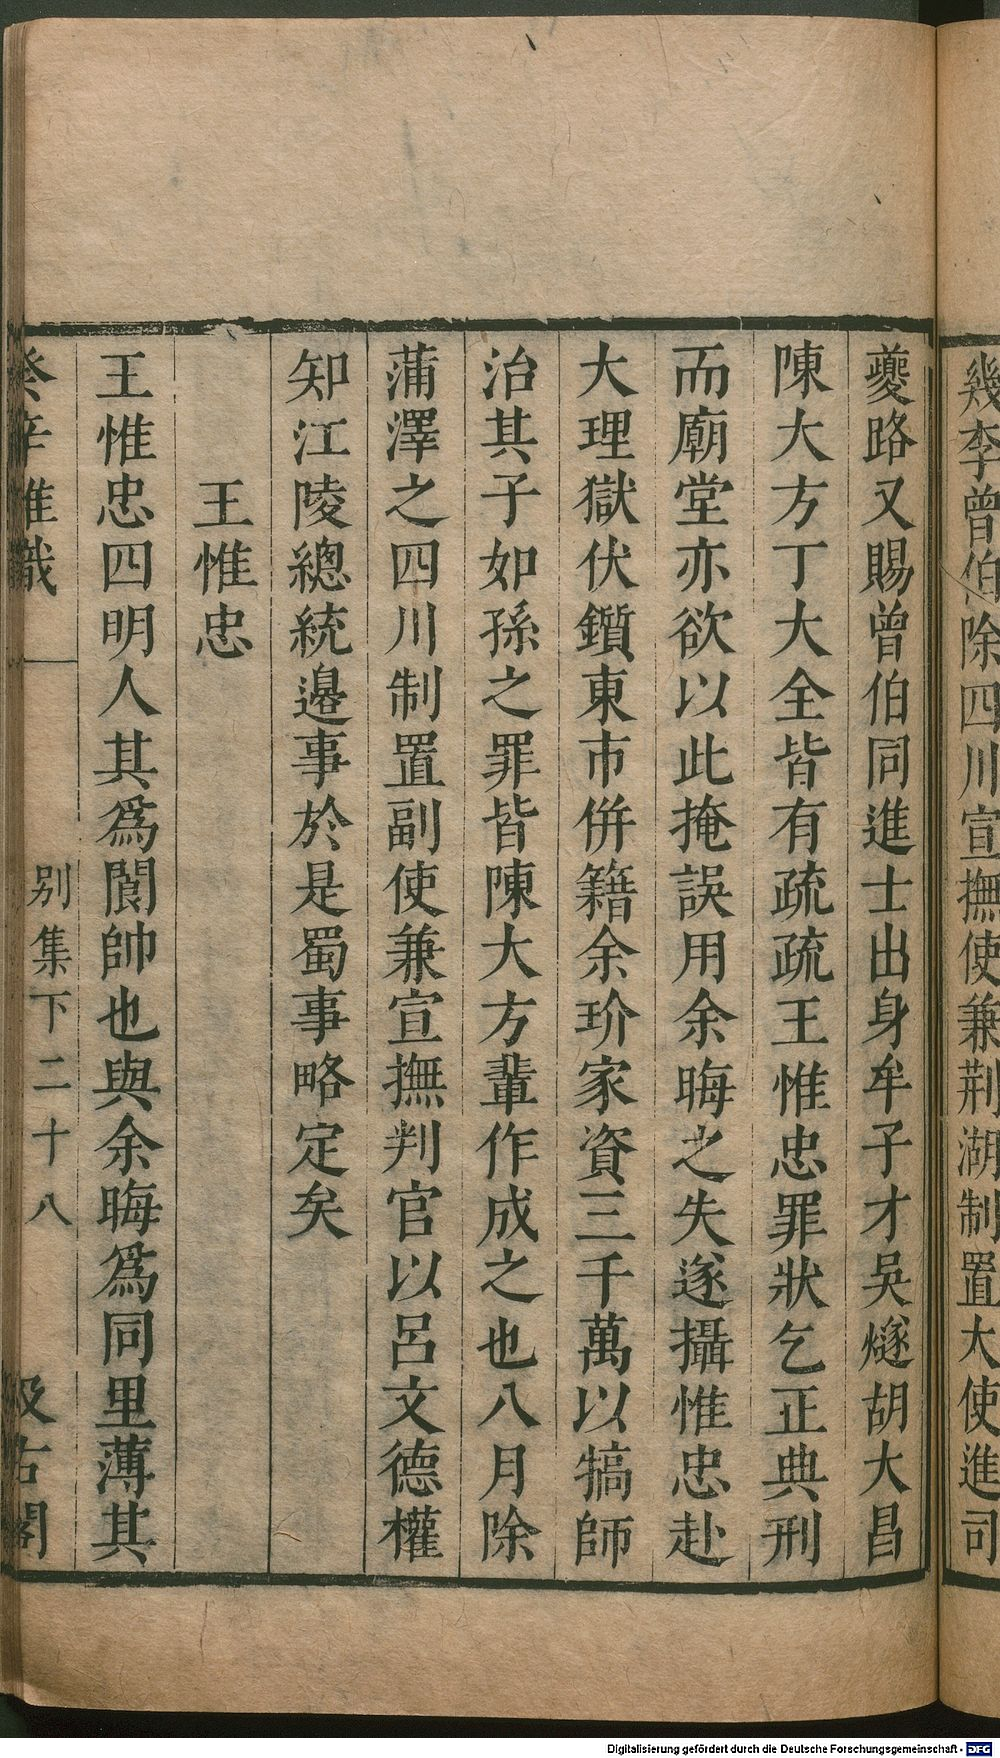 幾李曾伯除四川宣撫使兼荆湖制置大使進司
夔路又賜曾伯同進士出身牟子才吳燧胡大昌
陳大方丁大全皆有疏疏王惟忠罪狀乞正典刑
而廟堂亦欲以此掩誤用余晦之失遂攝惟忠赴
大理獄伏鑕東市併籍余玠家資三千萬以犒師
治其子如孫之罪皆陳大方輩作成之也八月除
蒲澤之四川制置副使兼宣撫判官以呂文德權
知江陵總統邉事於是蜀事略定矣
王惟忠
王惟忠四明人其爲閬帥也與余晦爲同里薄其
癸辛雜識 别集下二十八 汲古閣
Digitalisierung gefördert durch die Deutsche Forschungsgemeinschaft - DFG